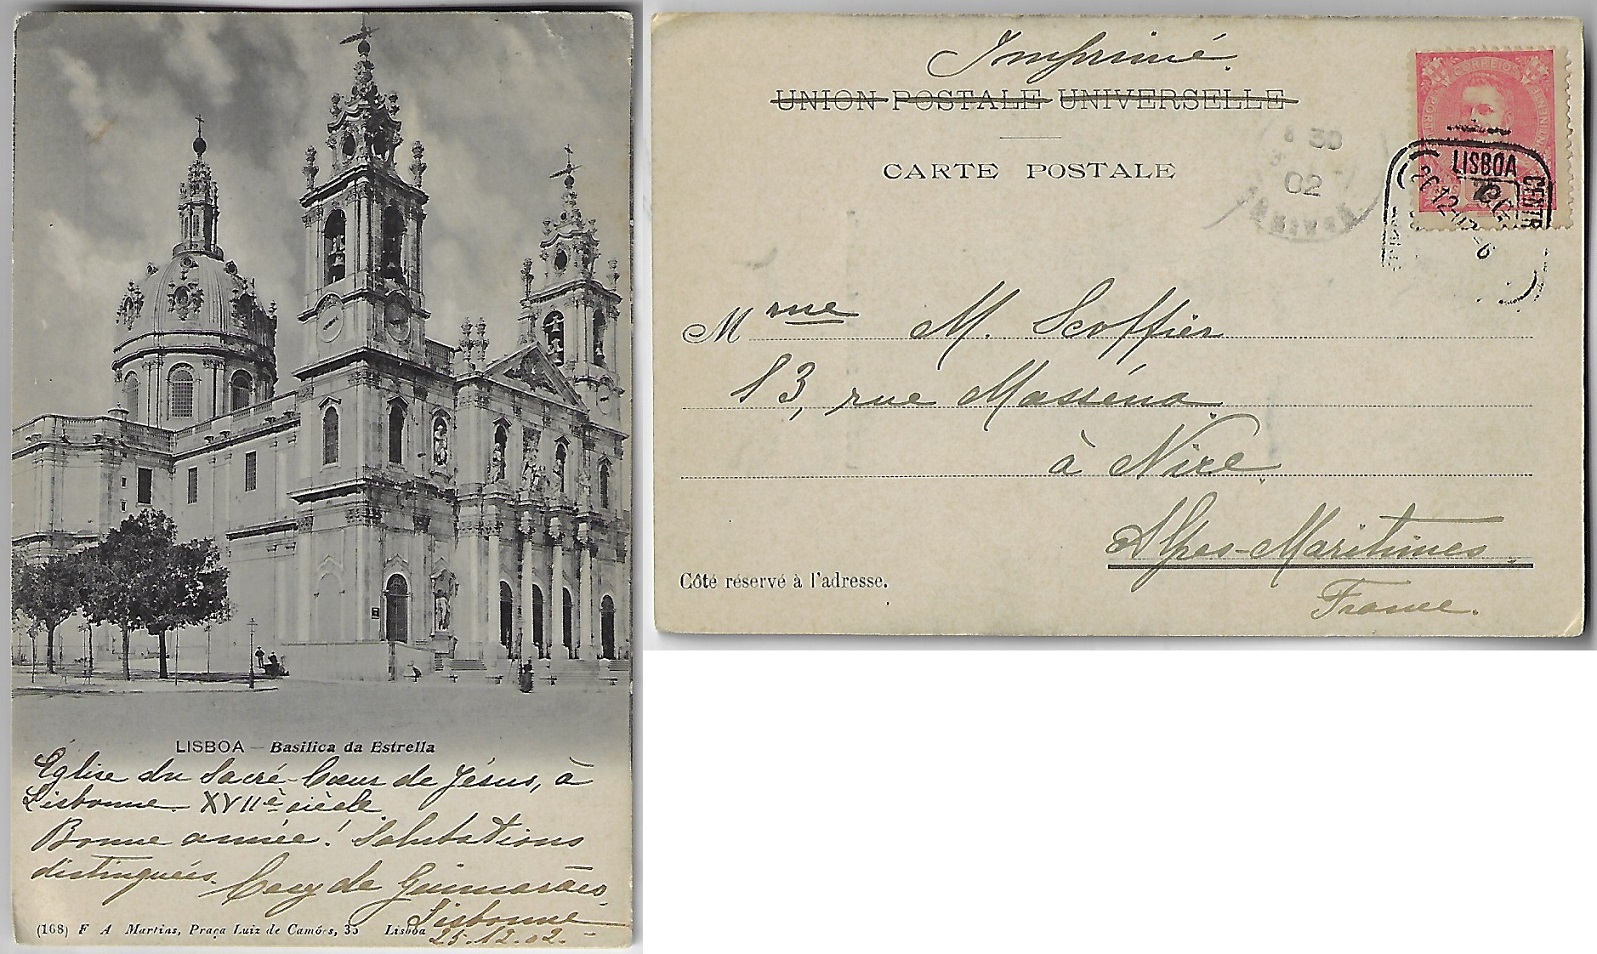 LISBOA — Basilica da Estrella
Église du Sacré-Cœur de Jésus, à
Lisbonne. XVIIè siècle
Bonne année! Salutations
distinguées.
de Guimarães,
Lisbonne
25.12.02.
(168) F A Martins, Praça Luiz de Camões, 35 Lisboa
Imprimé.
UNION POSTALE UNIVERSELLE
CARTE POSTALE
CORREIOS
30
02
LISBOA
CENTR
Mme M. Scoffier
13, rue Masséna
à Nice
Alpes-Maritimes
France.
Côté réservé à l'adresse.